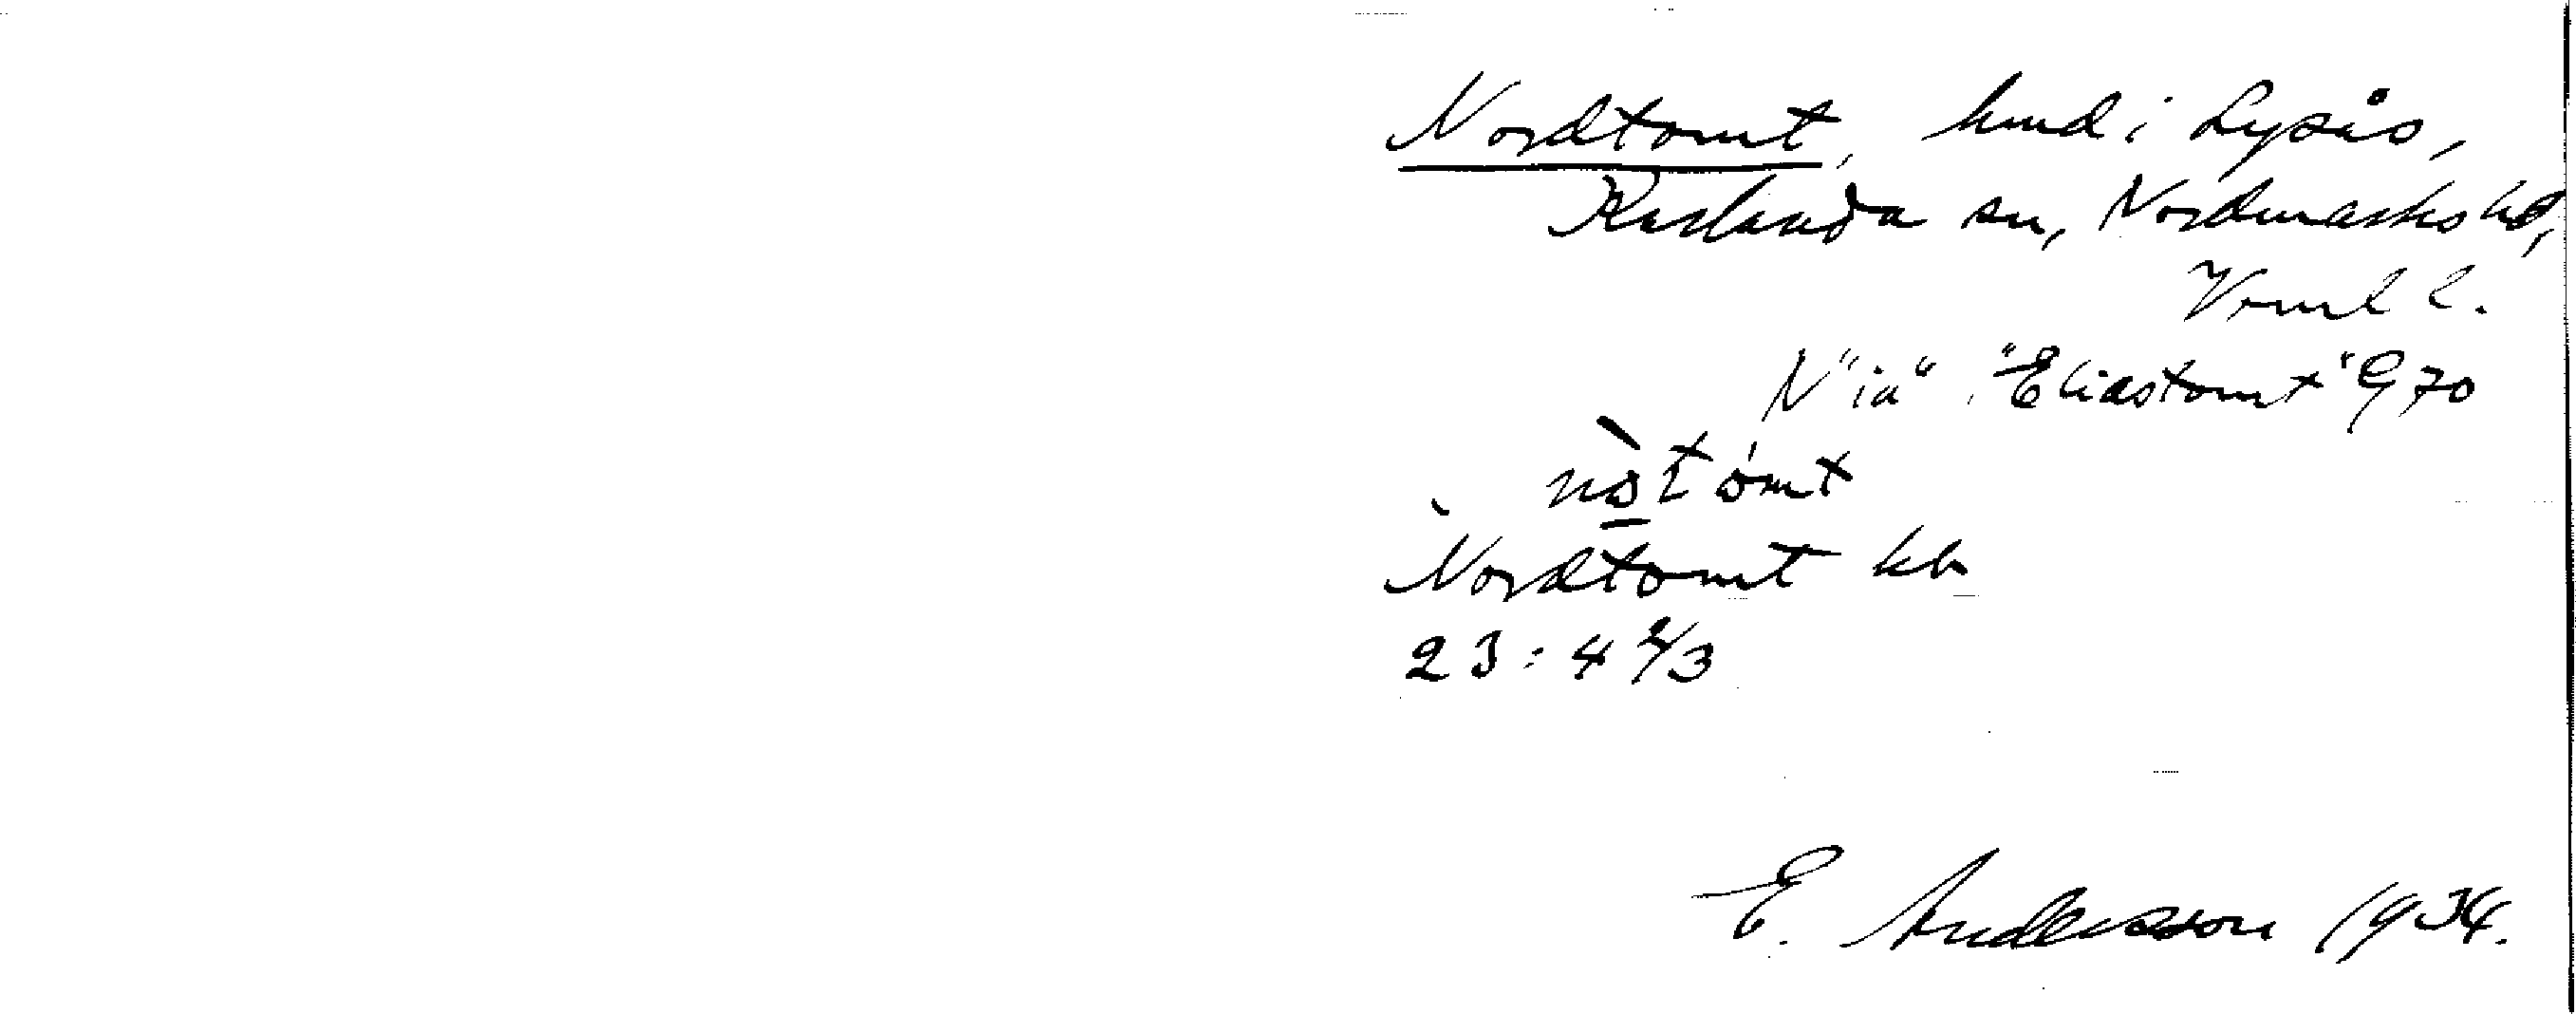 Nordtomt, hmd i Lysås,
Karlanda sn, Nordmarks hd,
Vrml l.
N "ia" "Eliastomt" G 70
Nordtomt kb
23:4 2/3
E. Andersson 1934.